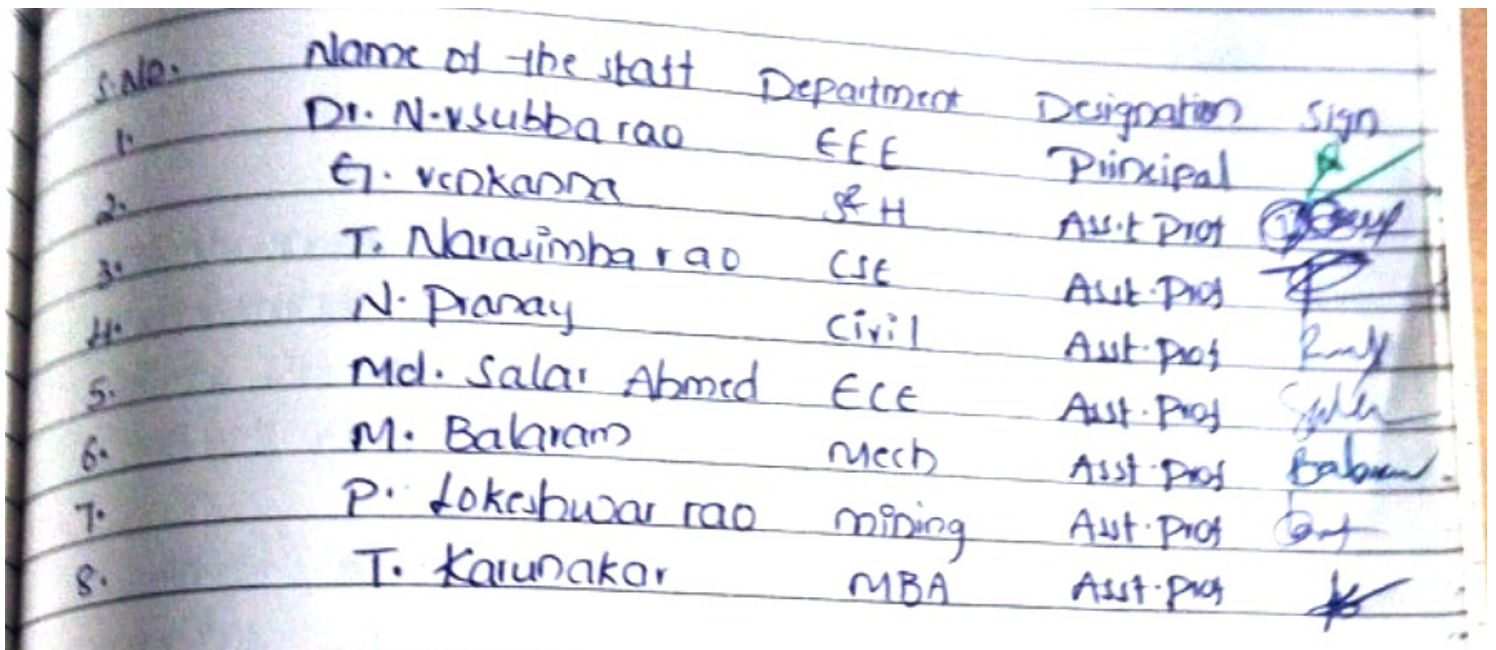 S.No. Name of the staff Department Designation Sign
1. Dr. N.V subba rao EEE Principal
2. G. Venkanna S&H Asst Prof
3. T. Narasimha rao CSE Asst.Prof
4. N. Pranay Civil Asst.Prof
5. Md. Salar Ahmed ECE Asst.Prof
6. M. Balaram Mech Asst.Prof Balaram
7. P. Lokeshwar rao mining Asst.Prof
8. T. Karunakar MBA Asst.Prof